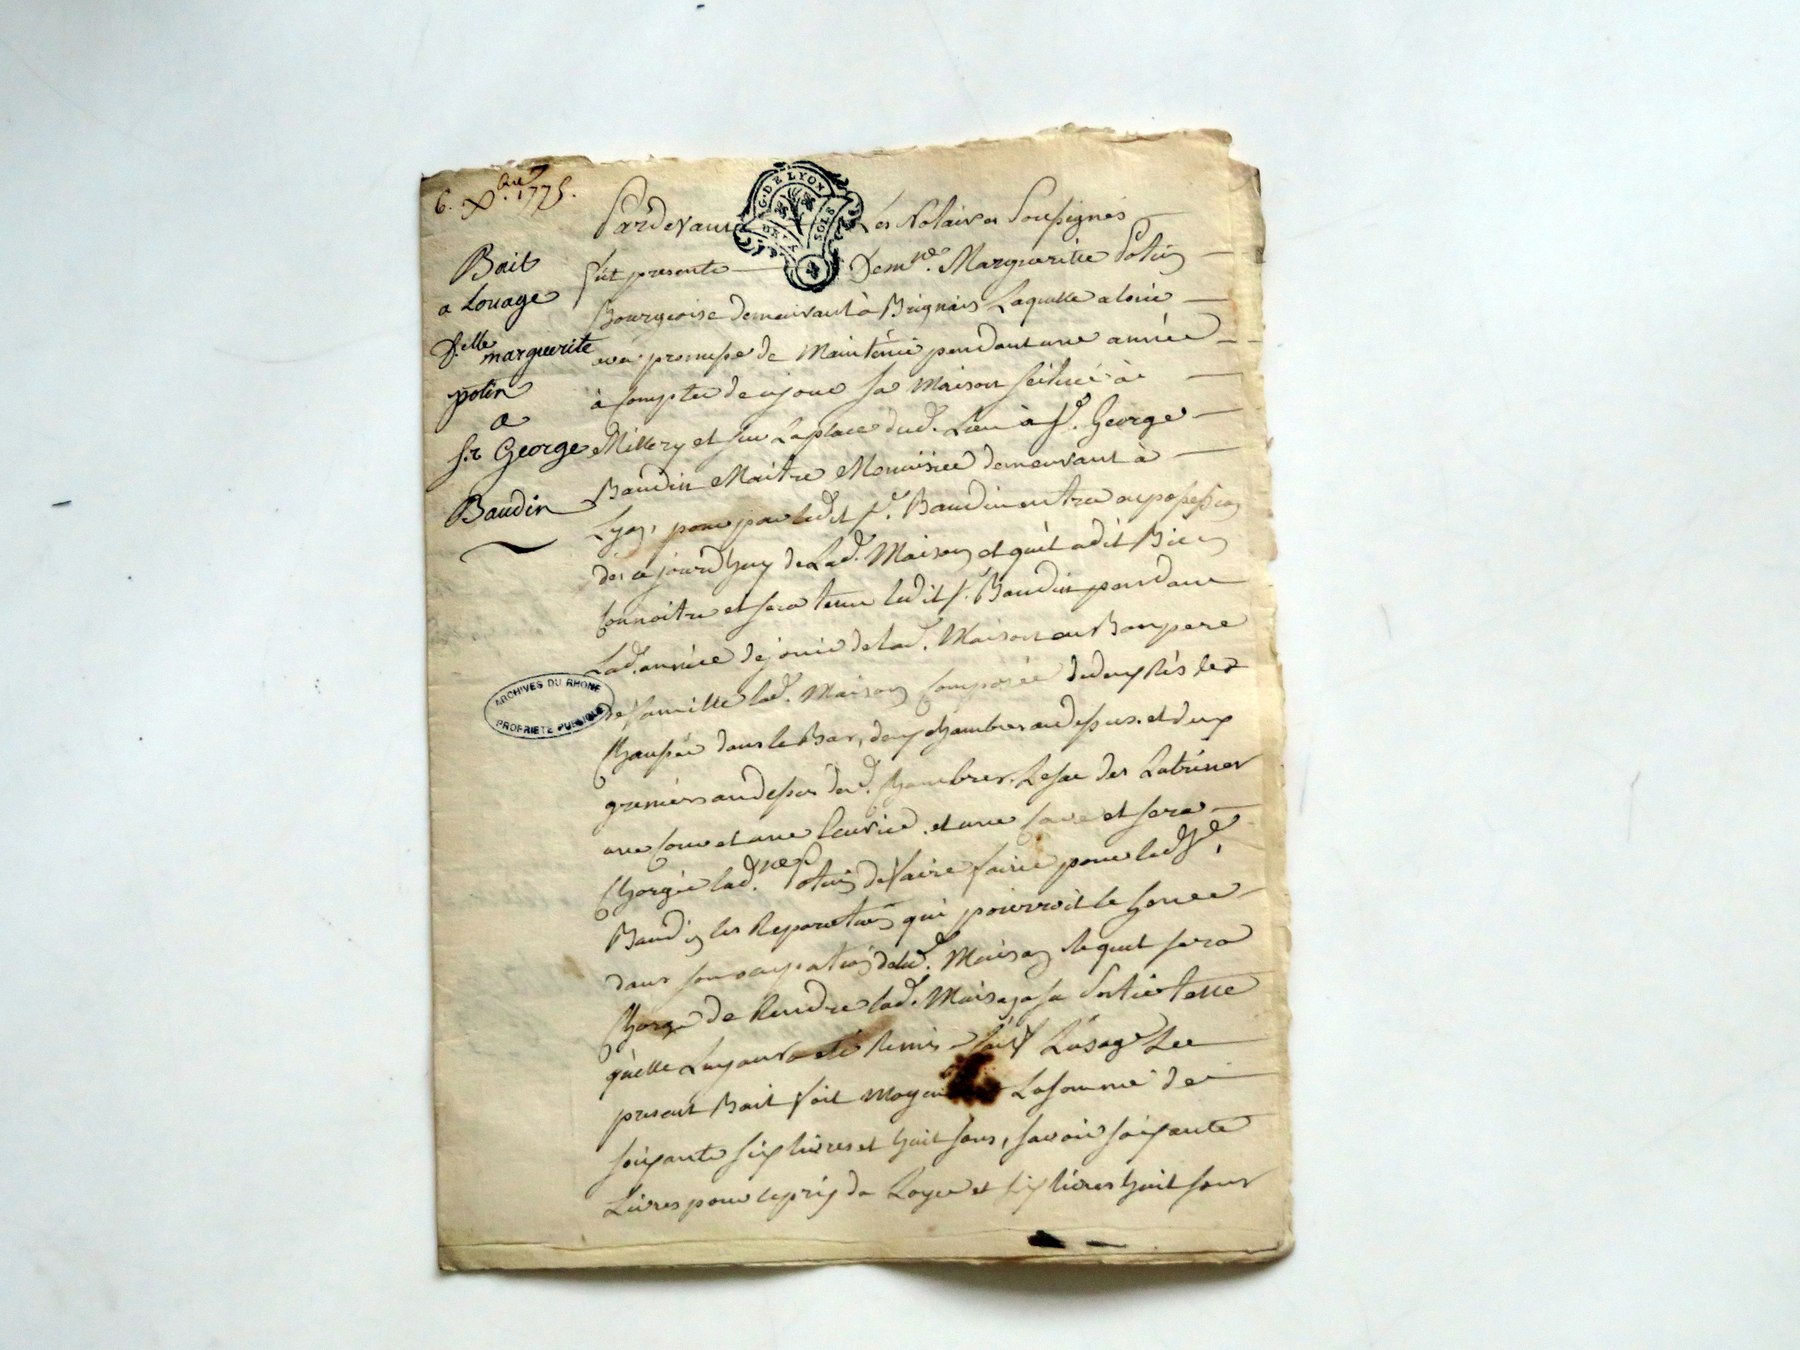 6. Xbre 1775.
G. DE LYON
DEUX SOLS
Bail
a Louage
D.elle marguerite
potin
a
S.r George
Baudin
ARCHIVES DU RHONE
PROPRIETE PUBLIQUE
Pardevant Les Notaires Soussignés
fut presente Dem.lle Marguerite Potin
Bourgeoise demeurant à Brignais Laquelle a loüé
et a promesse de Maintenir pendant une année
à Compter de ce jour sa Maison scituée à
Millery et sur La place dud. Lieu à S.r George
Baudin Maitre Menuisier demeurant à
Lyon, pour par ledit S.r Baudin entrer en possession
des ce jourd'huy de Lad. Maison et qu'il a dit Bien
Connoitre et sera tenu ledit S.r Baudin pendant
Lad. année de jouir de lad. Maison en Bon pere
de famille lad. Maison Composée de deux Rés de
Chaussée dans le Bas, deux chambres au dessus et deux
greniers au dessus desd. chambres. Le sac des Latrines
une Cour et une Ecurie et une Cave et sera
Chargée lad. Potin de faire faire pour led. S.r
Baudin les Reparations qui pourroit le gener
dans son occupation de lad. Maison lequel sera
Chargé de Rendre lad. Maison a sa Sortie telle
qu'elle Luy aura été Remise sauf L'usage Le
present Bail fait moyennant La somme de
soixante six livres et huit sous, savoir soixante
Livres pour le prix de Loyer et six livres huit sous